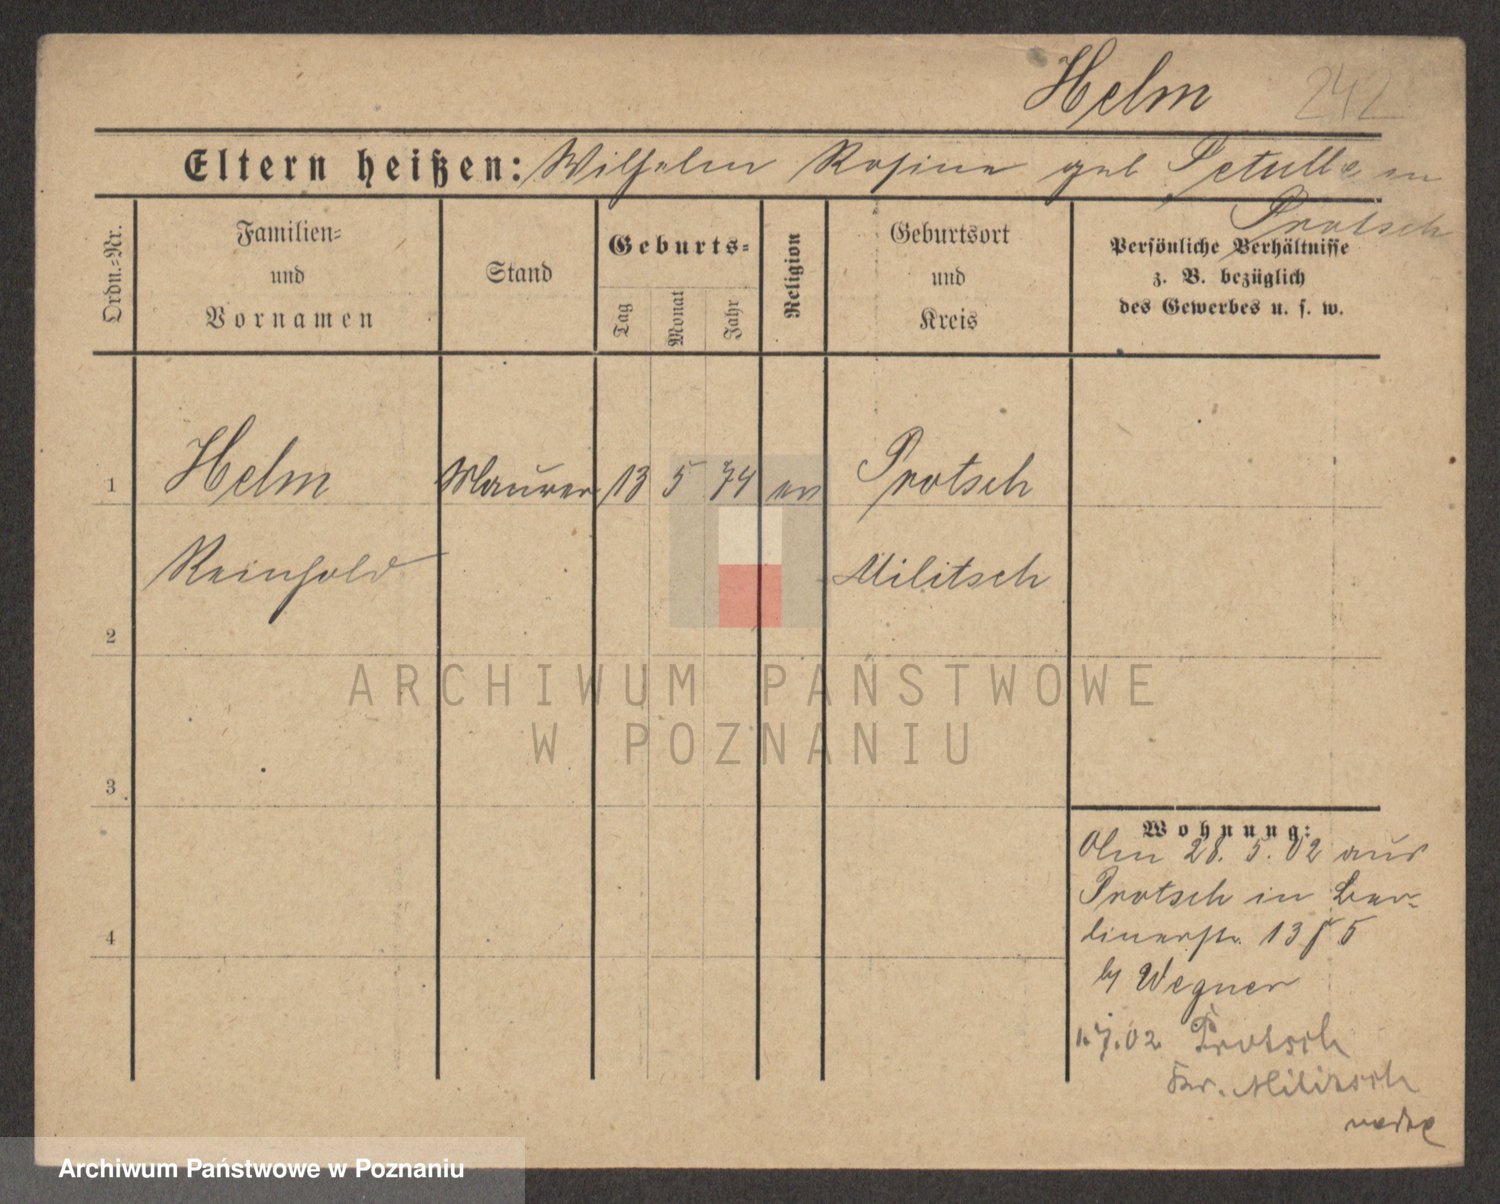 Helm 242
Eltern heißen: Wilhelm Rosine geb in
Protsch
Ordn.=Nr.
Familien=
und
Vornamen
Stand
Geburts=
Tag
Monat
Jahr
Religion
Geburtsort
und
Kreis
Persönliche Verhältnisse
z. B. bezüglich
des Gewerbes u. s. w.
1 Helm Maurer 13 5 74 ev Protsch
Reinhold Militsch
2
3
4
Wohnung:
Am 28. 5. 02 aus
Protsch in Ber-
linerstr. 13 5
Wegner
1.7.02 Protsch
Kr. Militsch
ARCHIWUM PAŃSTWOWE
W POZNANIU
Archiwum Państwowe w Poznaniu